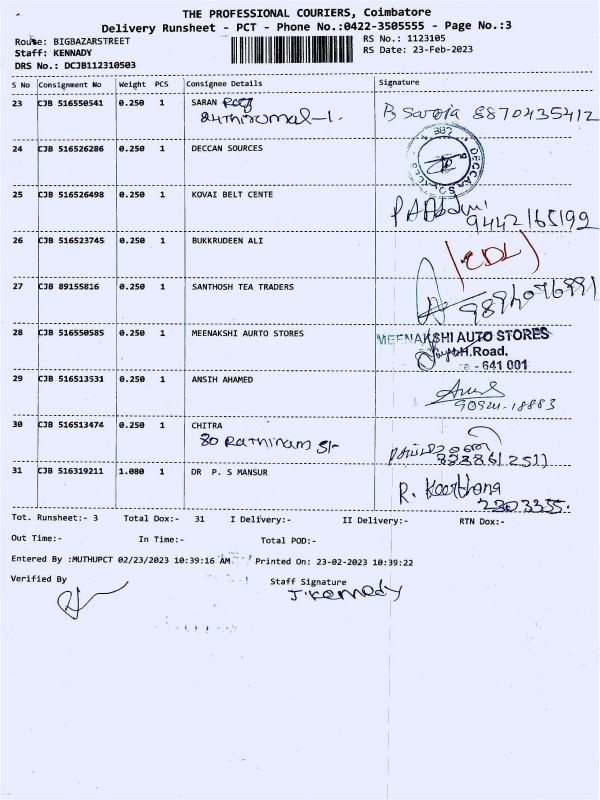 THE PROFESSIONAL COURIERS, Coimbatore
Delivery Runsheet - PCT - Phone No.:0422-3505555 - Page No.:3
Route: BIGBAZARSTREET RS No.: 1123105
Staff: KENNADY RS Date: 23-Feb-2023
DRS No.: DCJB112310503
S No Consignment No Weight PCS Consignee Details Signature
23 CJB 516550541 0.250 1 SARAN 8870435412
24 CJB 516526286 0.250 1 DECCAN SOURCES
25 CJB 516526498 0.250 1 KOVAI BELT CENTE
9442165199
26 CJB 516523745 0.250 1 BUKKRUDEEN ALI
27 CJB 89155816 0.250 1 SANTHOSH TEA TRADERS
28 CJB 516550585 0.250 1 MEENAKSHI AURTO STORES MEENAKSHI AUTO STORES
H.Road,
- 641 001
29 CJB 516513531 0.250 1 ANSIH AHAMED
30 CJB 516513474 0.250 1 CHITRA
80 Rathinam S/-
31 CJB 516319211 1.080 1 DR P. S MANSUR R. Keerthana
2303355.
Tot. Runsheet:- 3 Total Dox:- 31 I Delivery:- II Delivery:- RTN Dox:-
Out Time:- In Time:- Total POD:-
Entered By :MUTHUPCT 02/23/2023 10:39:16 AM Printed On: 23-02-2023 10:39:22
Verified By Staff Signature
J. Kennady